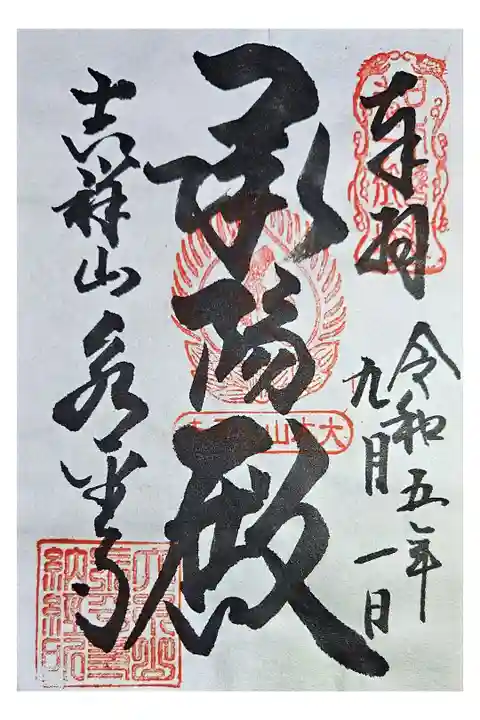 奉拝
令和五年
九月一日
承陽殿
大本山
吉祥山永平寺